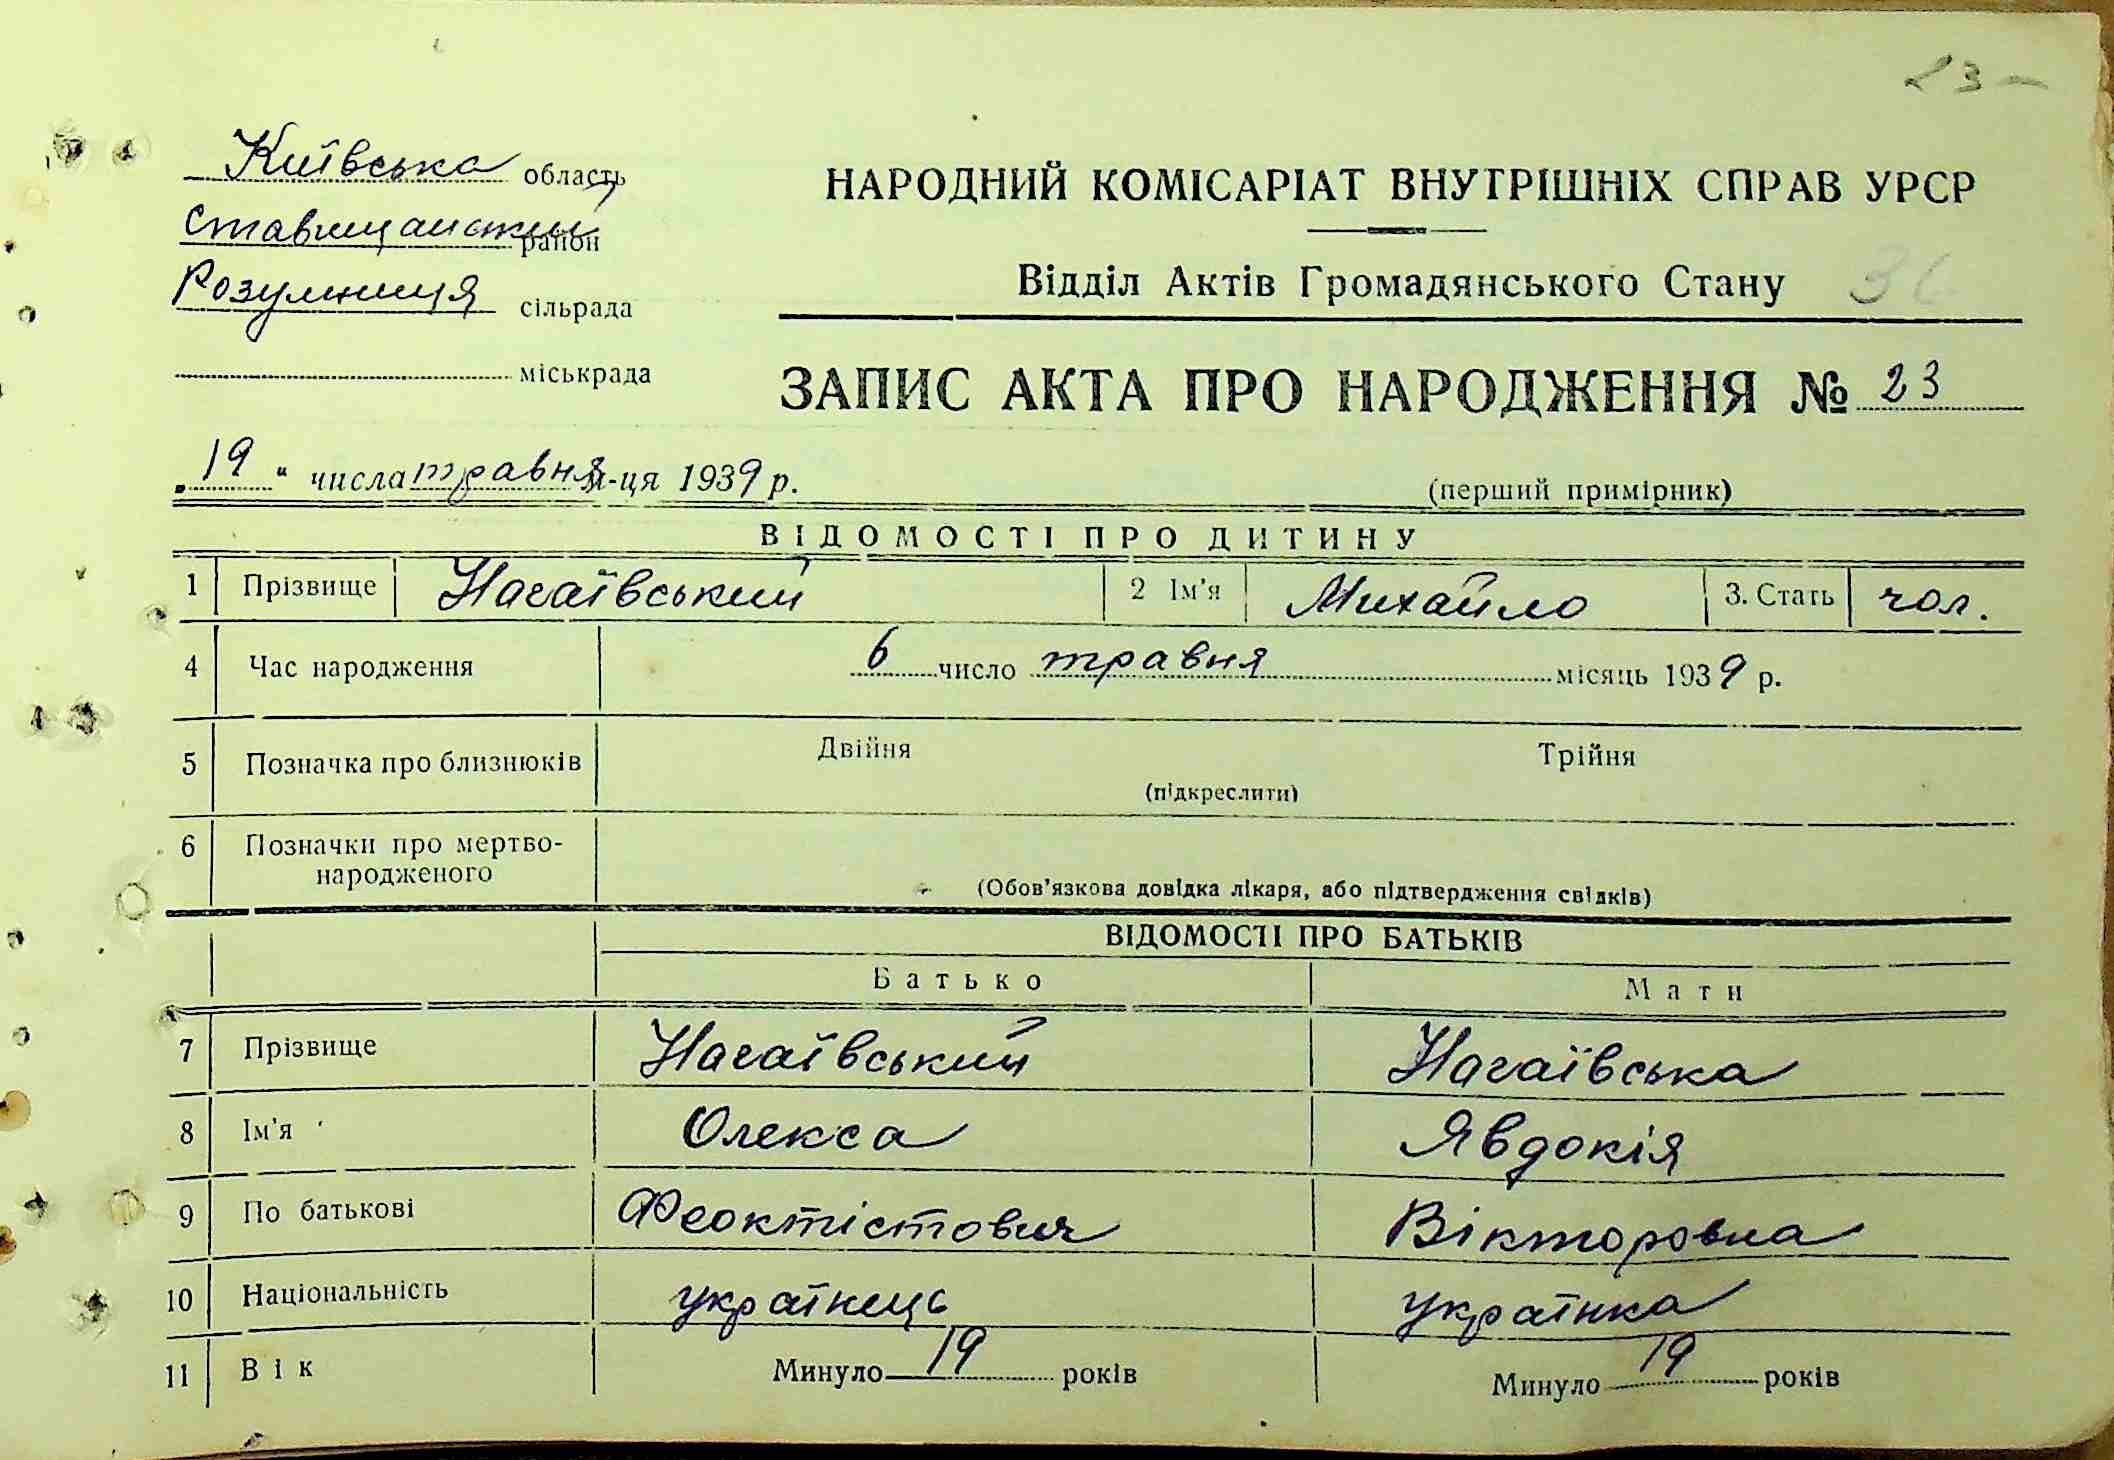 23
Київська область
Ставищанский район
Розумниця сільрада
міськрада
НАРОДНИЙ КОМІСАРІАТ ВНУТРІШНІХ СПРАВ УРСР
Відділ Актів Громадянського Стану 36
ЗАПИС АКТА ПРО НАРОДЖЕННЯ № 23
„19“ числа травня м-ця 1939 р.
(перший примірник)
ВІДОМОСТІ ПРО ДИТИНУ
1 Прізвище Нагаївський 2 Ім'я Михайло 3. Стать чол.
4 Час народження 6 число травня місяць 1939 р.
5 Позначка про близнюків Двійня Трійня
(підкреслити)
6 Позначки про мертво-
народженого
(Обов'язкова довідка лікаря, або підтвердження свідків)
ВІДОМОСТІ ПРО БАТЬКІВ
Батько Мати
7 Прізвище Нагаївський Нагаївська
8 Ім'я Олекса Явдокія
9 По батькові Феоктістович Вікторовна
10 Національність українець українка
11 Вік Минуло 19 років Минуло 19 років